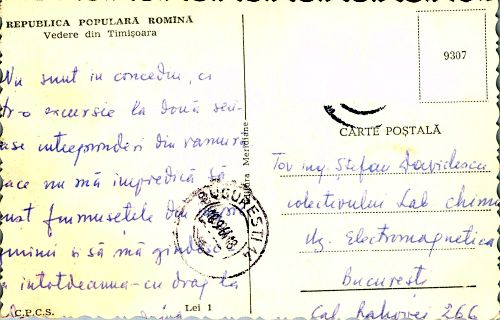 REPUBLICA POPULARĂ ROMÎNĂ
Vedere din Timișoara
Nu sunt in concediu, ci
tr-o excursie la două
ase intreprinderi din ramura
ace nu mă impiedică să
frumusețile din
și să mă
intotdeauna cu drag la
C.P.C.S.
Lei 1
Meridiane
BUCUREȘTI
9307
CARTE POȘTALĂ
Tov ing. Ștefan Davidescu
colectivului Lab chimic
Uz. Electromagnetica
București
Cal. Rahovei 266